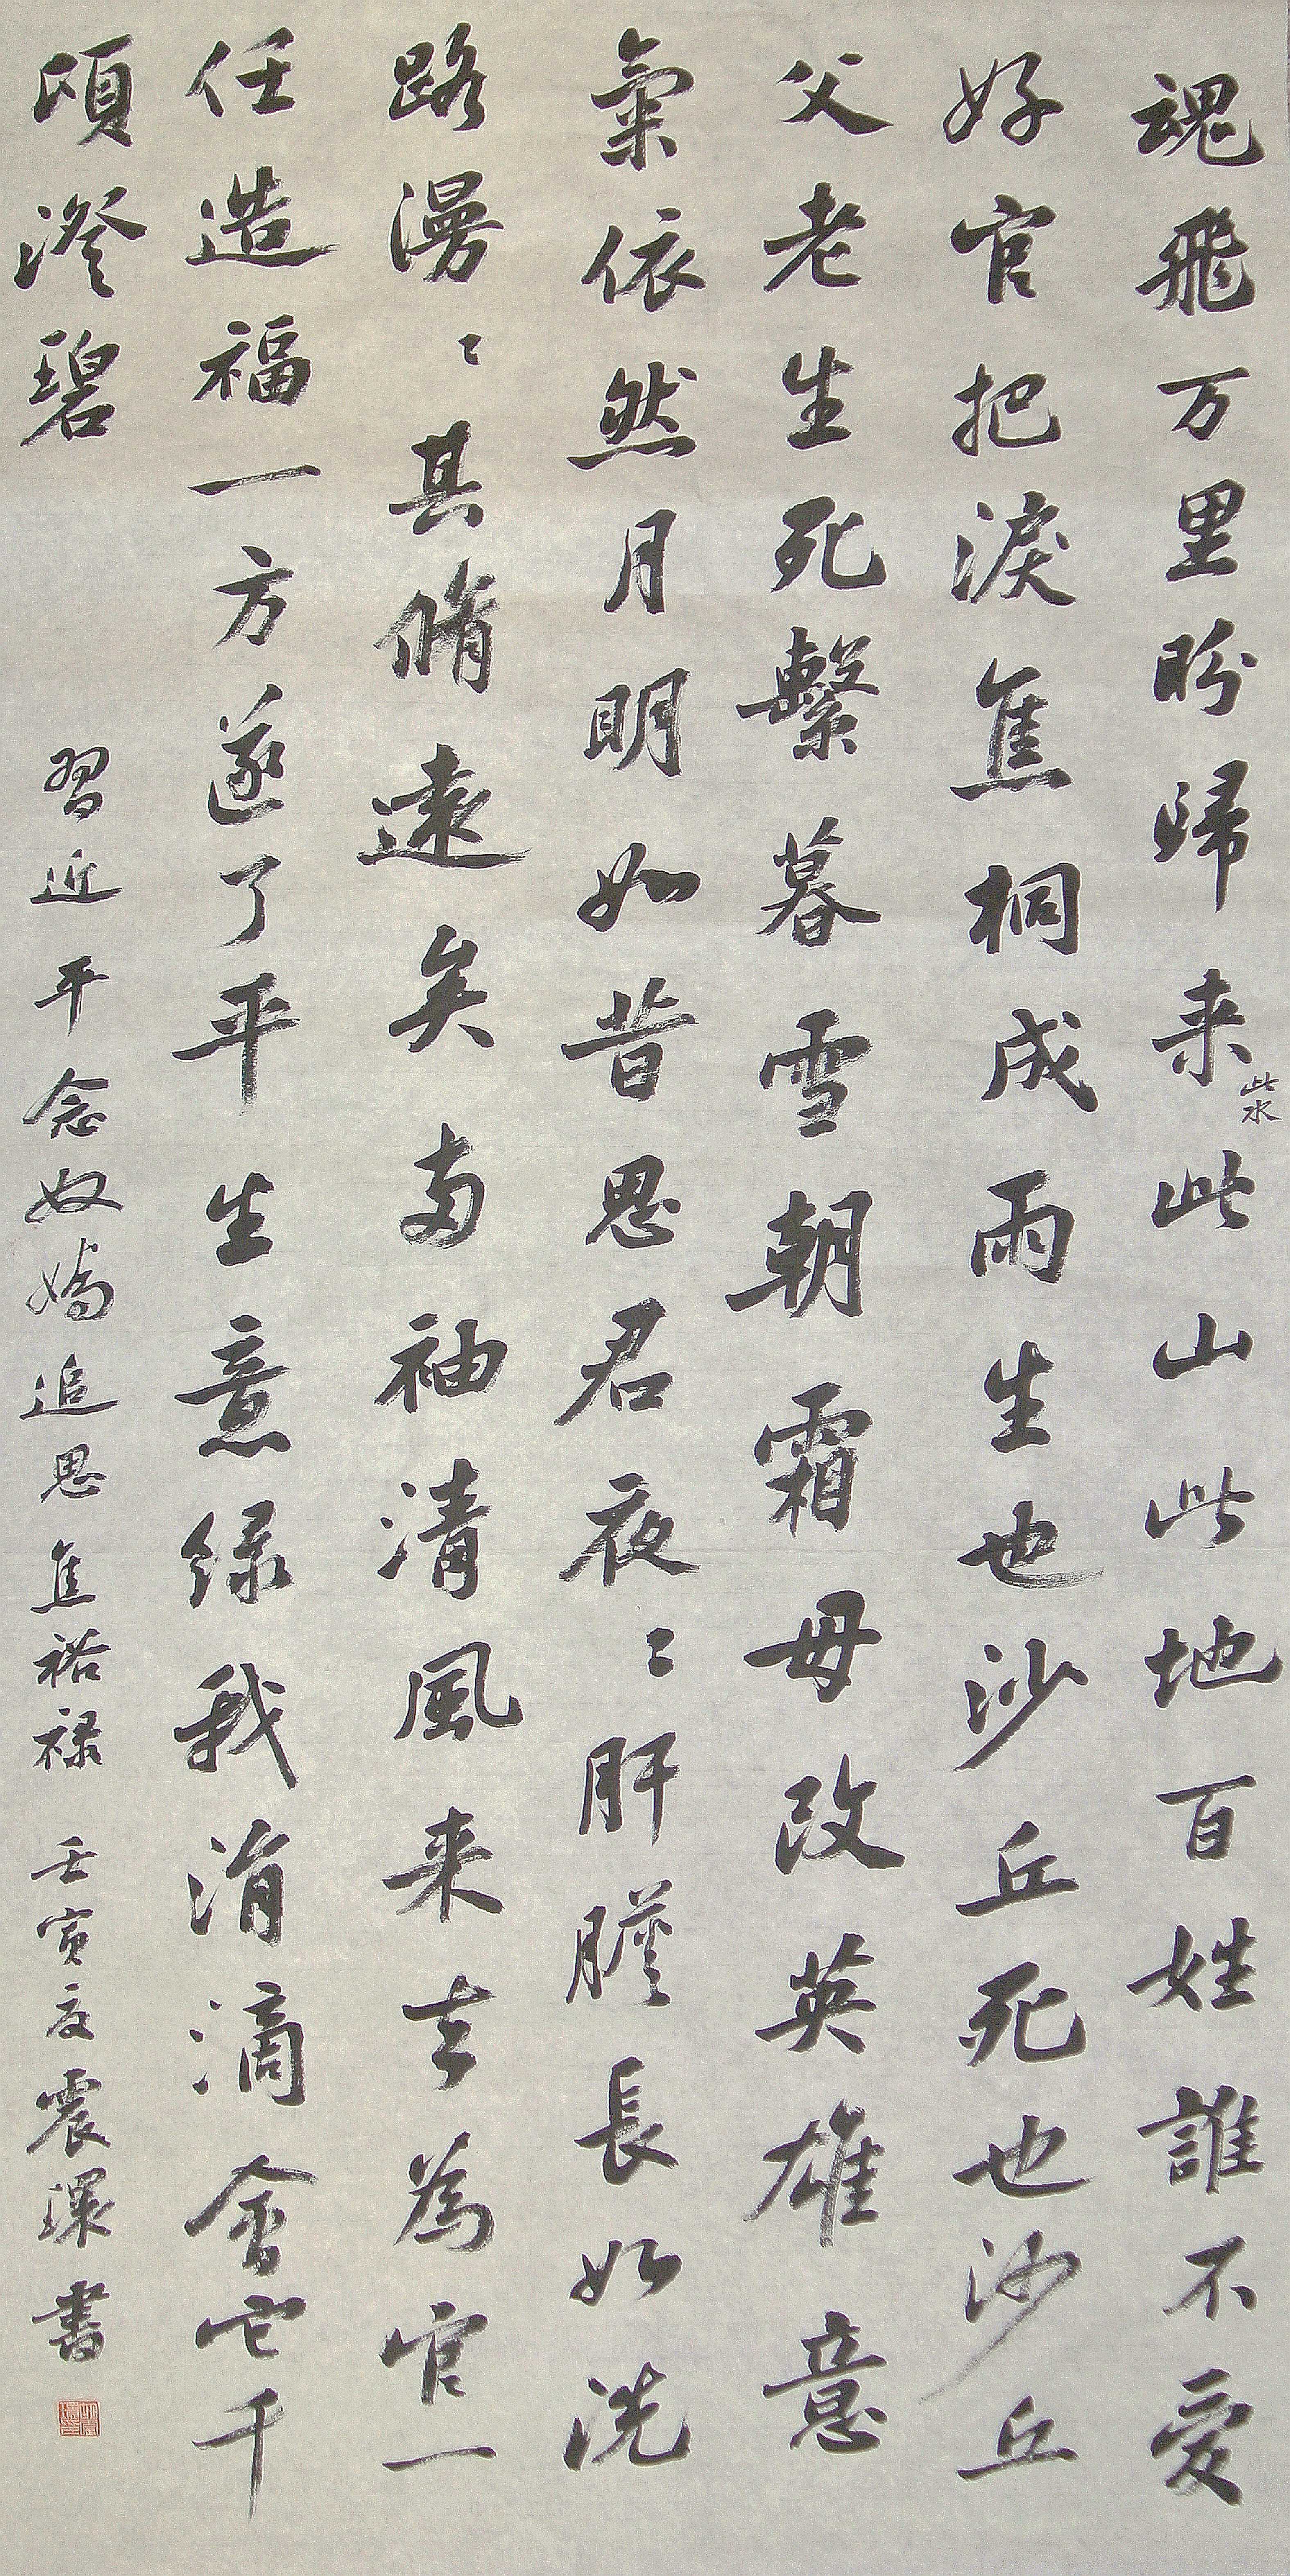 魂飛万里盼歸来此水此山此地百姓誰不愛
好官把淚焦桐成雨生也沙丘死也沙丘
父老生死繫暮雪朝霜毋改英雄意
氣依然月明如昔思君夜〻肝膽長如洗
路漫〻其脩遠矣兩袖清風来去為官一
任造福一方遂了平生意绿我涓滴會它千
頃澄碧
習近平念奴嬌追思焦裕禄 壬寅夏震環書